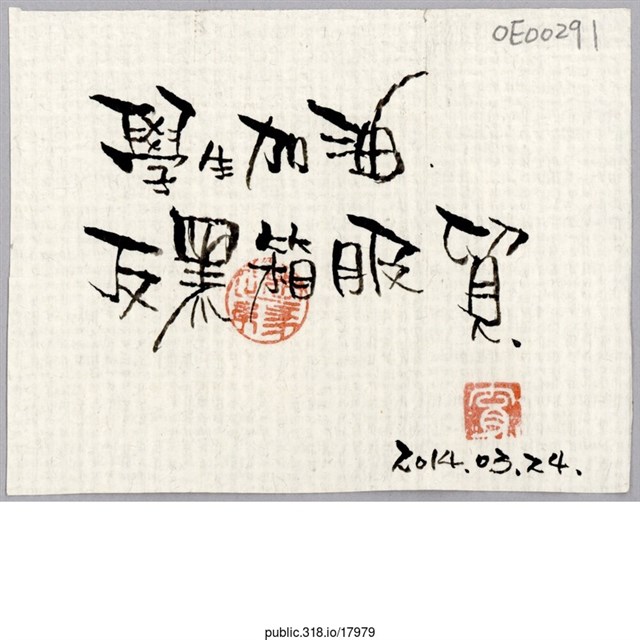 OE00291
學生加油.
反黑箱服貿.
2014.03.24.
public.318.io/17979